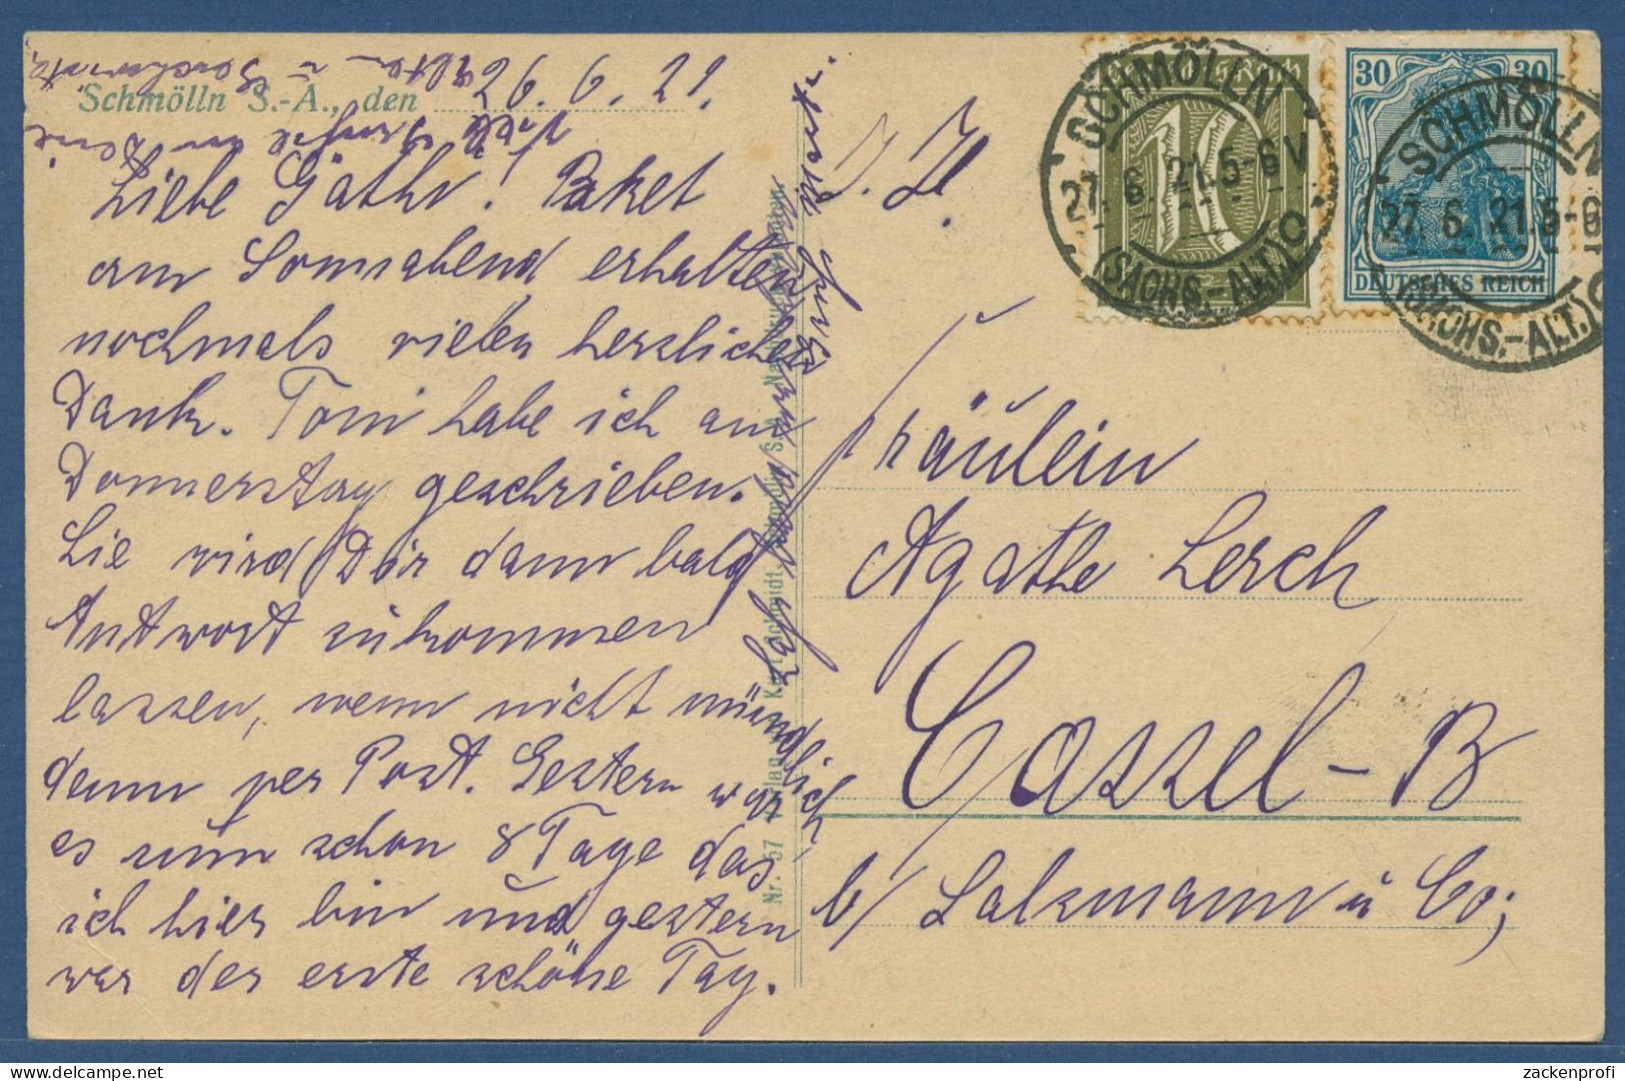 Schmölln S.-A., den 26. 6. 21.
Liebe Gathr! Paket
am Sonnabend erhalten
nochmals vielen herzlichen
Dank. Toni habe ich am
Donnerstag geschrieben.
Sie wird Dir dann bald
Antwort zukommen
lassen, wenn nicht mündlich
dann per Post. Gestern war
es nun schon 8 Tage das
ich hier bin und gestern
war der erste schöne Tag.
Viele Grüße an Deine
Eltern u. Geschwister
Nr. 57 Verlag v. Karl Schmidt, Schmölln S.-A.
10
SCHMÖLLN
27. 6. 21. 5-6 V
(SACHS.-ALT.)
30 30
DEUTSCHES REICH
SCHMÖLLN
27. 6. 21. 5-6
(SACHS.-ALT.)
Fräulein
Agathe Lerch
Cassel-B
b/ Salzmann u Co;
zackenprofi